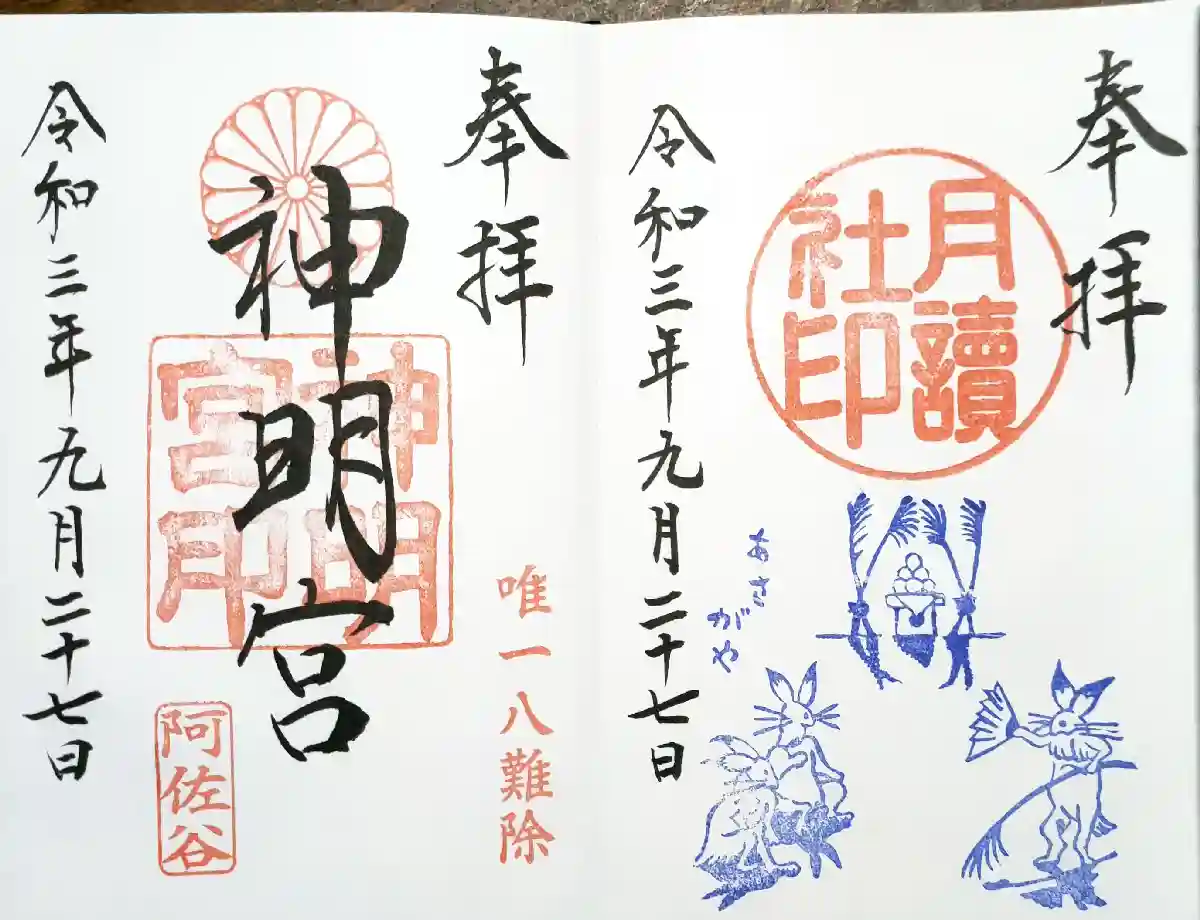 奉拝
月讀社印
あさがや
令和三年九月二十七日
奉拝
唯一八難除
神明宮
神明宮印
阿佐谷
令和三年九月二十七日